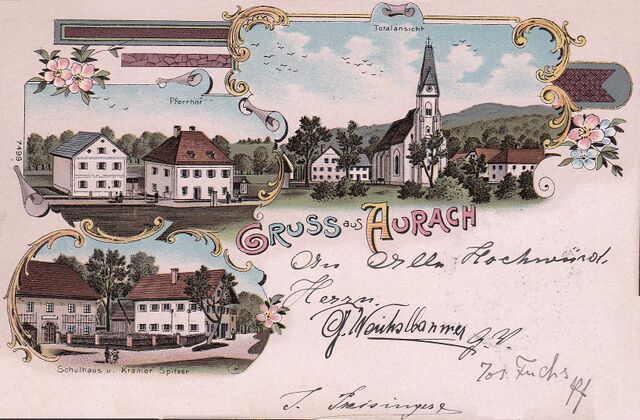 Totalansicht
Pfarrhof
7499
GRUSS aus AURACH
Schulhaus u. Krämer Spitzer
An Alle Hochwürd.
Herrn
G. Weichslbaumer G. V.
Jos. Fuchs
J.